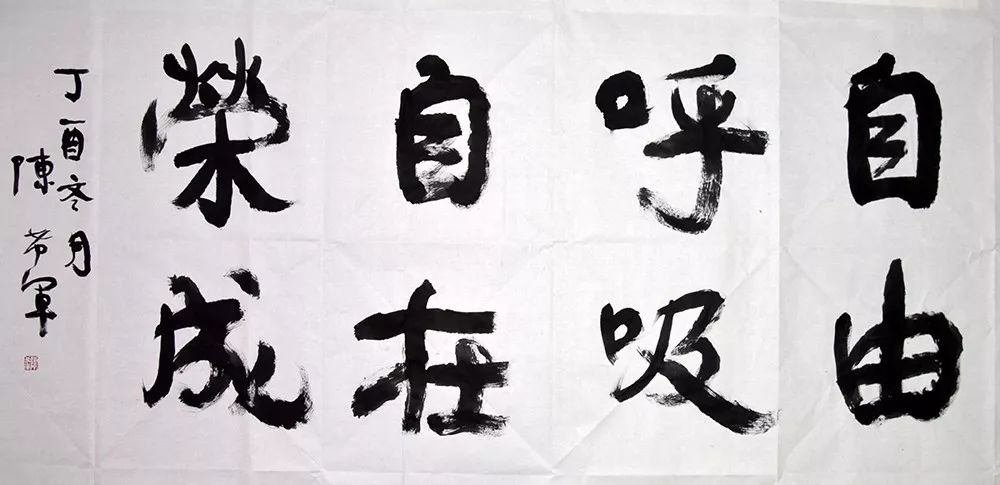 自由
呼吸
自在
榮成
丁酉冬月
陳芳軍